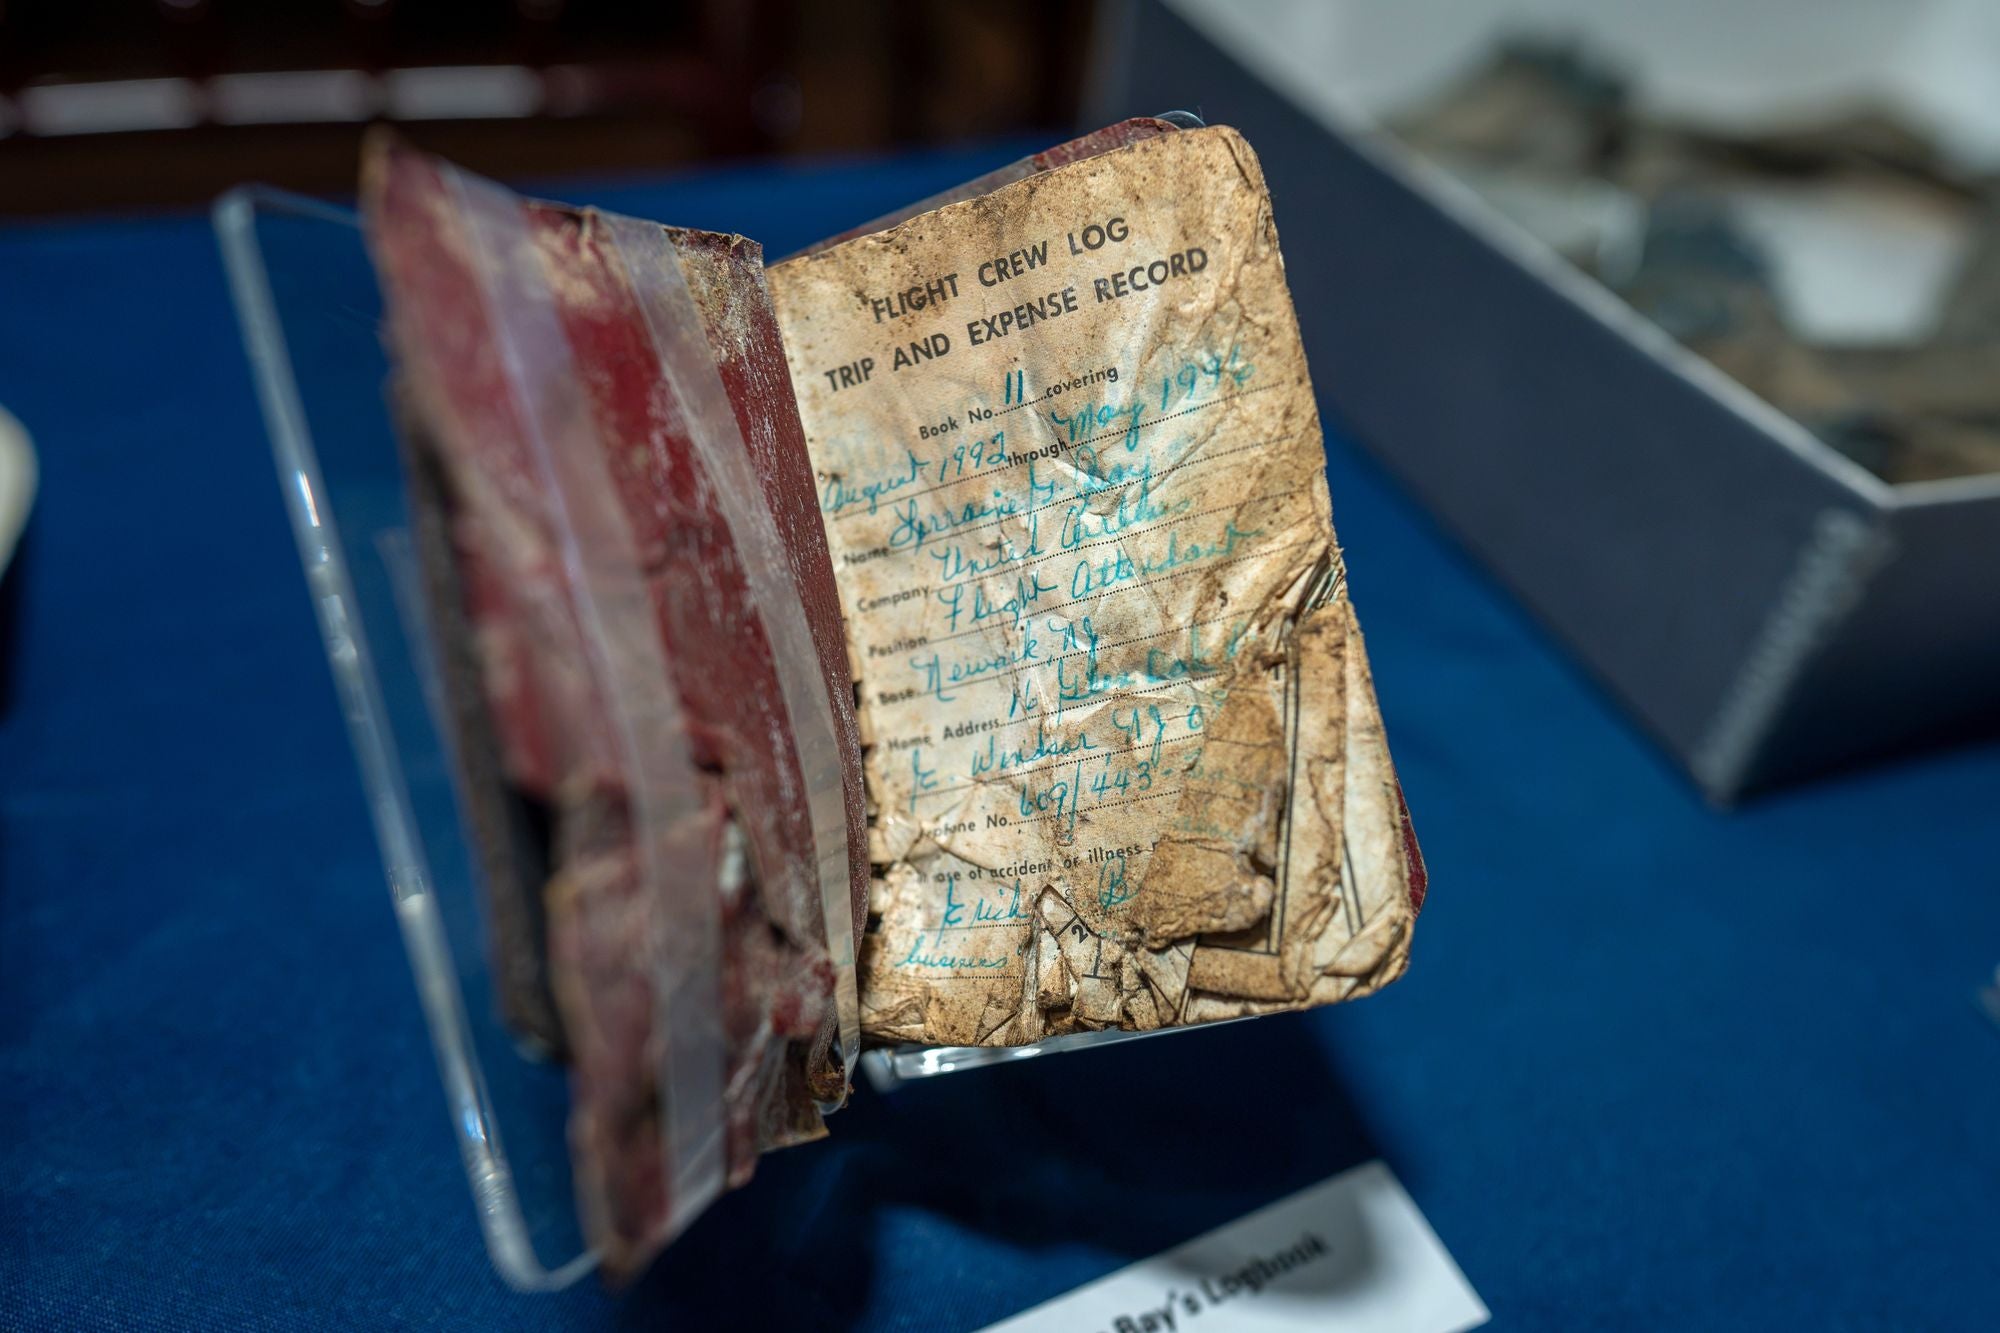 FLIGHT CREW LOG
TRIP AND EXPENSE RECORD
Book No. 11 covering
August 1992 through May 1996
Name Lorraine G. Bay
Company United Airlines
Position Flight Attendant
Base Newark, NJ
Home Address 16
E. Windsor NJ 0
No. 609/443-
of accident or illness
Erich B
business
Bay's Logbook